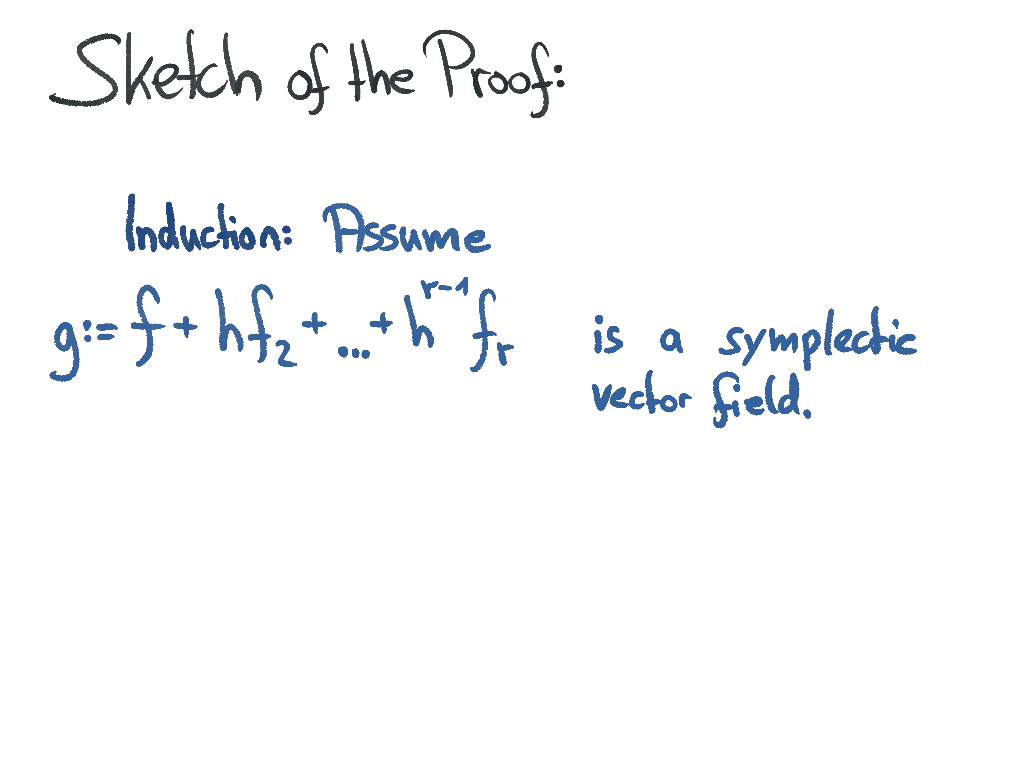 Sketch of the Proof:
Induction: Assume
g := f + hf₂ + ... + hʳ⁻¹ fᵣ is a symplectic
vector field.